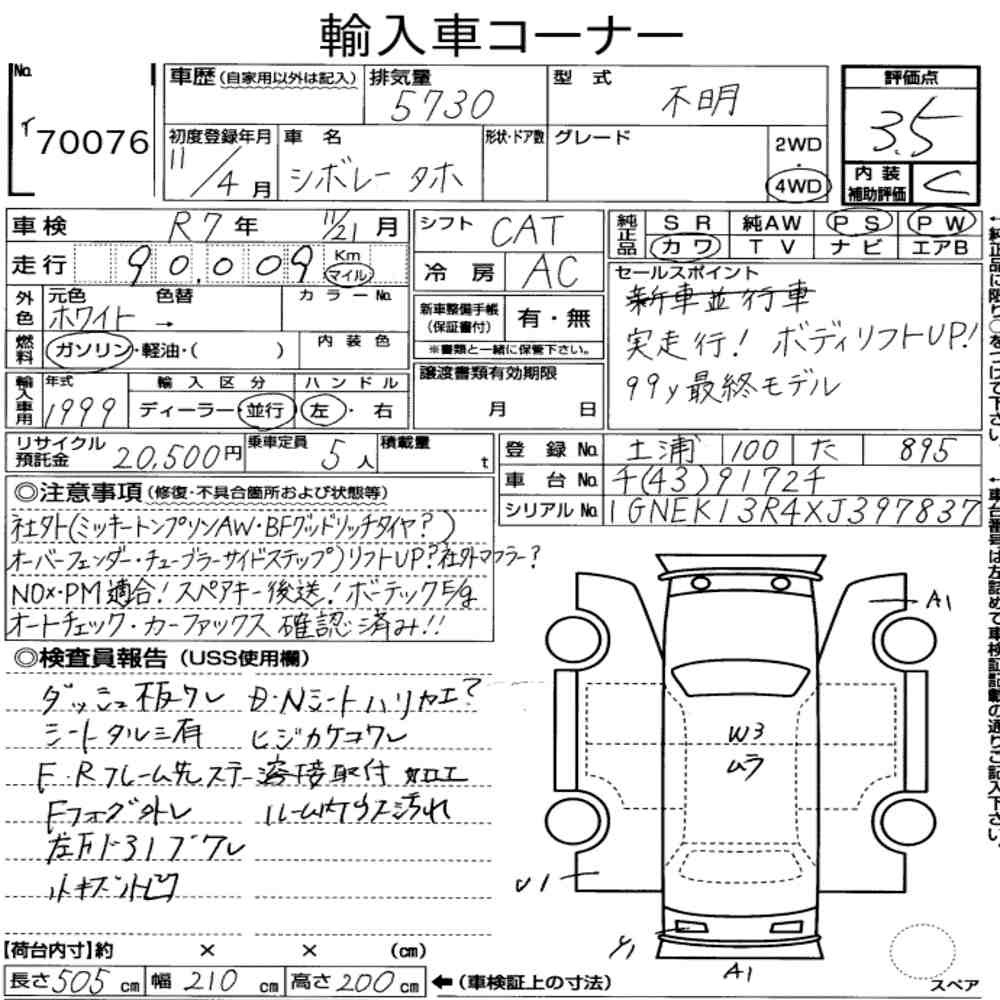 輸入車コーナー
No.
イ70076
車歴(自家用以外は記入) 排気量 5730 型式 不明
評価点 3.5
初度登録年月 11/4月 車名 シボレー タホ 形状・ドア数 グレード 2WD・4WD
内装補助評価 C
車検 R7年 11/21月
シフト CAT
純正品 SR 純AW PS PW
カワ TV ナビ エアB
走行 90,009 Km マイル
冷房 AC
外色 元色 ホワイト → 色替 カラーNo.
新車整備手帳(保証書付) 有・無
※書類と一緒に保管下さい。
セールスポイント
新車並行車
実走行! ボディリフトUP!
99y最終モデル
燃料 ガソリン・軽油・( ) 内装色
譲渡書類有効期限
月 日
輸入車用 年式 1999 輸入区分 ディーラー・並行 ハンドル 左・右
リサイクル預託金 20,500円 乗車定員 5人 積載量 t
登録No. 土浦 100 た 895
車台No. 千(43)9172千
シリアルNo. 1GNEK13R4XJ397837
◎注意事項(修復・不具合箇所および状態等)
社外(ミッキートンプソンAW・BFグッドリッチタイヤ?)
オーバーフェンダー・チューブラーサイドステップ)リフトUP?社外マフラー?
NOx・PM適合!スペアキー後送!ボーテックE/g
オートチェック・カーファックス確認済み!!
◎検査員報告(USS使用欄)
ダッシュ板ワレ D・Nシートハリカエ?
シートタルミ有 ヒジカケコワレ
F・Rフレーム先ステー溶接取付 加工
Fフォグ外レ ルーム内ウス汚れ
小キズ
A1
W3
ムラ
U1
Y1
A1
スペア
【荷台内寸】約 × × (cm)
長さ505cm 幅210cm 高さ200cm ←(車検証上の寸法)
←純正品に限り○をつけて下さい。
←車台番号は左詰めで車検証記載の通りご記入下さい。